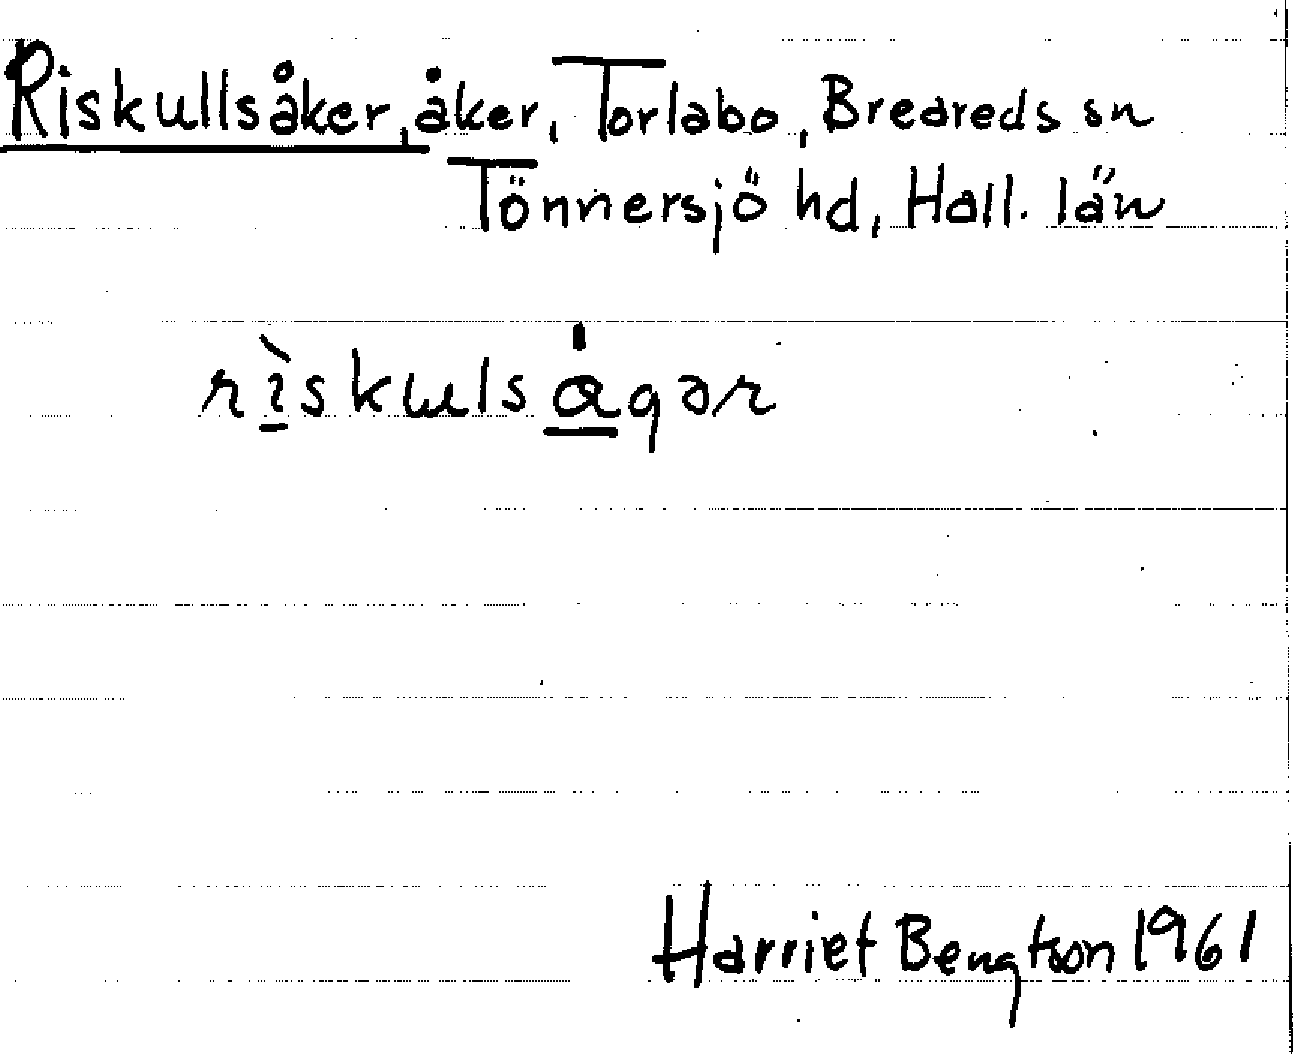 Riskullsåker, åker, Torlabo, Breareds sn
Tönnersjö hd, Hall. län
rìskulságər
Harriet Bengtson 1961